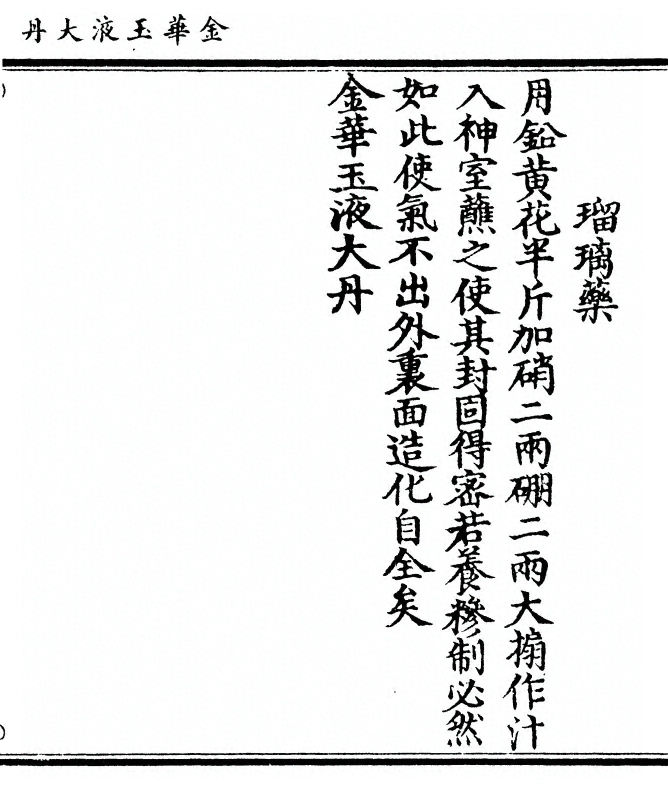 金華玉液大丹
瑠璃藥
用鉛黃花半斤加硝二兩硼二兩大搧作汁
入神室蘸之使其封固得密若養糝制必然
如此使氣不出外裏面造化自全矣
金華玉液大丹